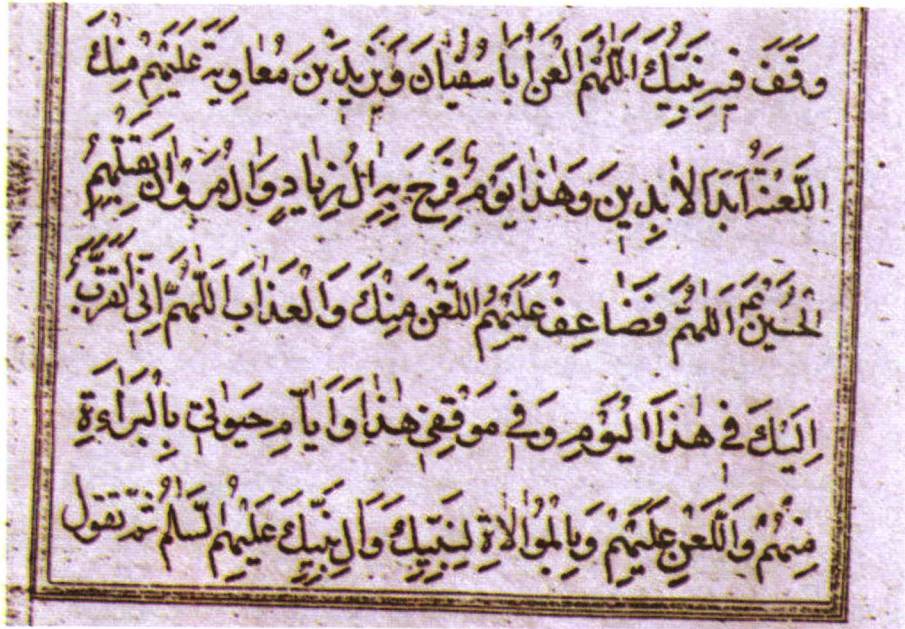 وَقَفَ فِيهِ نَبِيُّكَ اَللّٰهُمَّ الْعَنْ اَبَا سُفْيَانَ وَيَزِيدَ بْنَ مُعَاوِيَةَ عَلَيْهِمْ مِنْكَ
اللَّعْنَةُ اَبَدَ الْاٰبِدِينَ وَهٰذَا يَوْمٌ فَرِحَ بِهِ اٰلُ زِيَادٍ وَاٰلُ مَرْوَانَ بِقَتْلِهِمُ
الْحُسَيْنَ ع اَللّٰهُمَّ فَضَاعِفْ عَلَيْهِمُ اللَّعْنَ مِنْكَ وَالْعَذَابَ اَللّٰهُمَّ اِنِّي اَتَقَرَّبُ
اِلَيْكَ فِي هٰذَا الْيَوْمِ وَفِي مَوْقِفِي هٰذَا وَاَيَّامِ حَيٰوتِي بِالْبَرَاءَةِ
مِنْهُمْ وَاللَّعْنِ عَلَيْهِمْ وَبِالْمُوَالَاةِ لِنَبِيِّكَ وَاٰلِ نَبِيِّكَ عَلَيْهِمُ السَّلَامُ ثُمَّ تَقُولُ